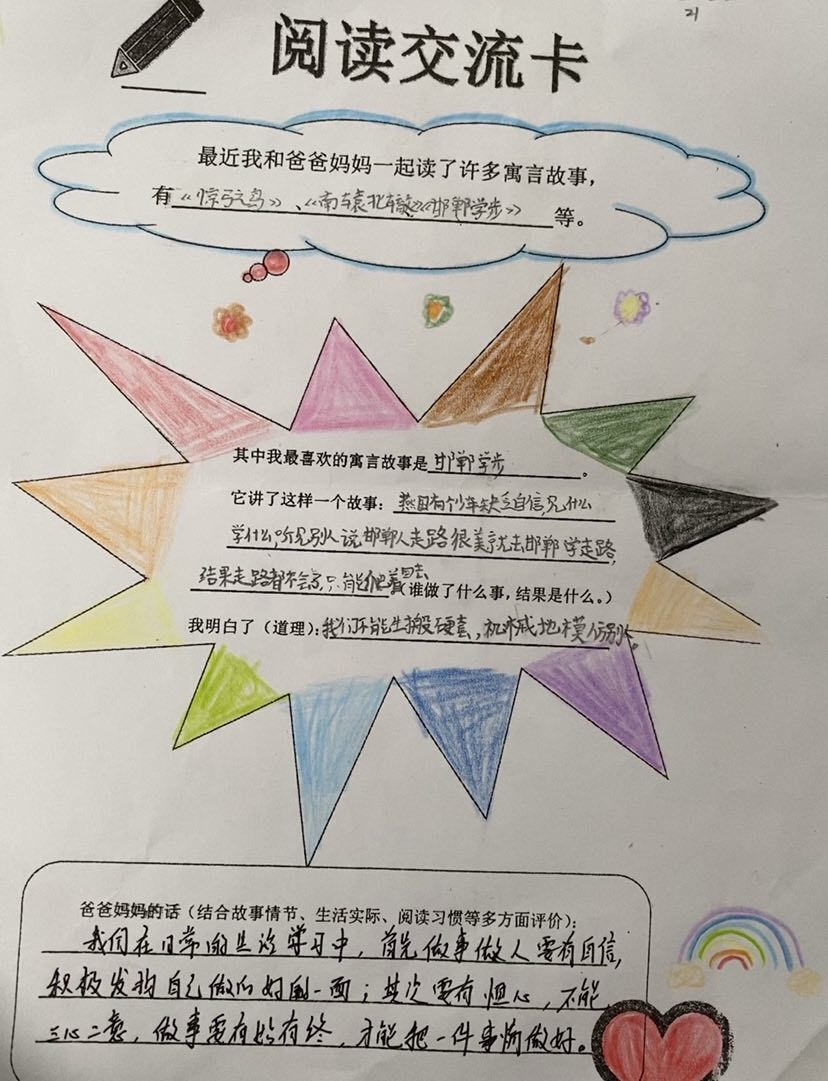 21
阅读交流卡
最近我和爸爸妈妈一起读了许多寓言故事，
有《惊弓之鸟》、《南辕北辙》《邯郸学步》等。
其中我最喜欢的寓言故事是邯郸学步。
它讲了这样一个故事：燕国有个少年缺乏自信,见什么
学什么,听见别人说邯郸人走路很美,就去邯郸学走路,
结果走路都不会了,只能爬着回去(谁做了什么事，结果是什么。）
我明白了（道理）：我们不能生搬硬套，机械地模仿别人。
爸爸妈妈的话（结合故事情节、生活实际、阅读习惯等多方面评价）：
我们在日常的生活学习中，首先做事做人要有自信,
积极发挥自己做的好的一面；其次要有恒心，不能
三心二意，做事要有始有终，才能把一件事情做好。